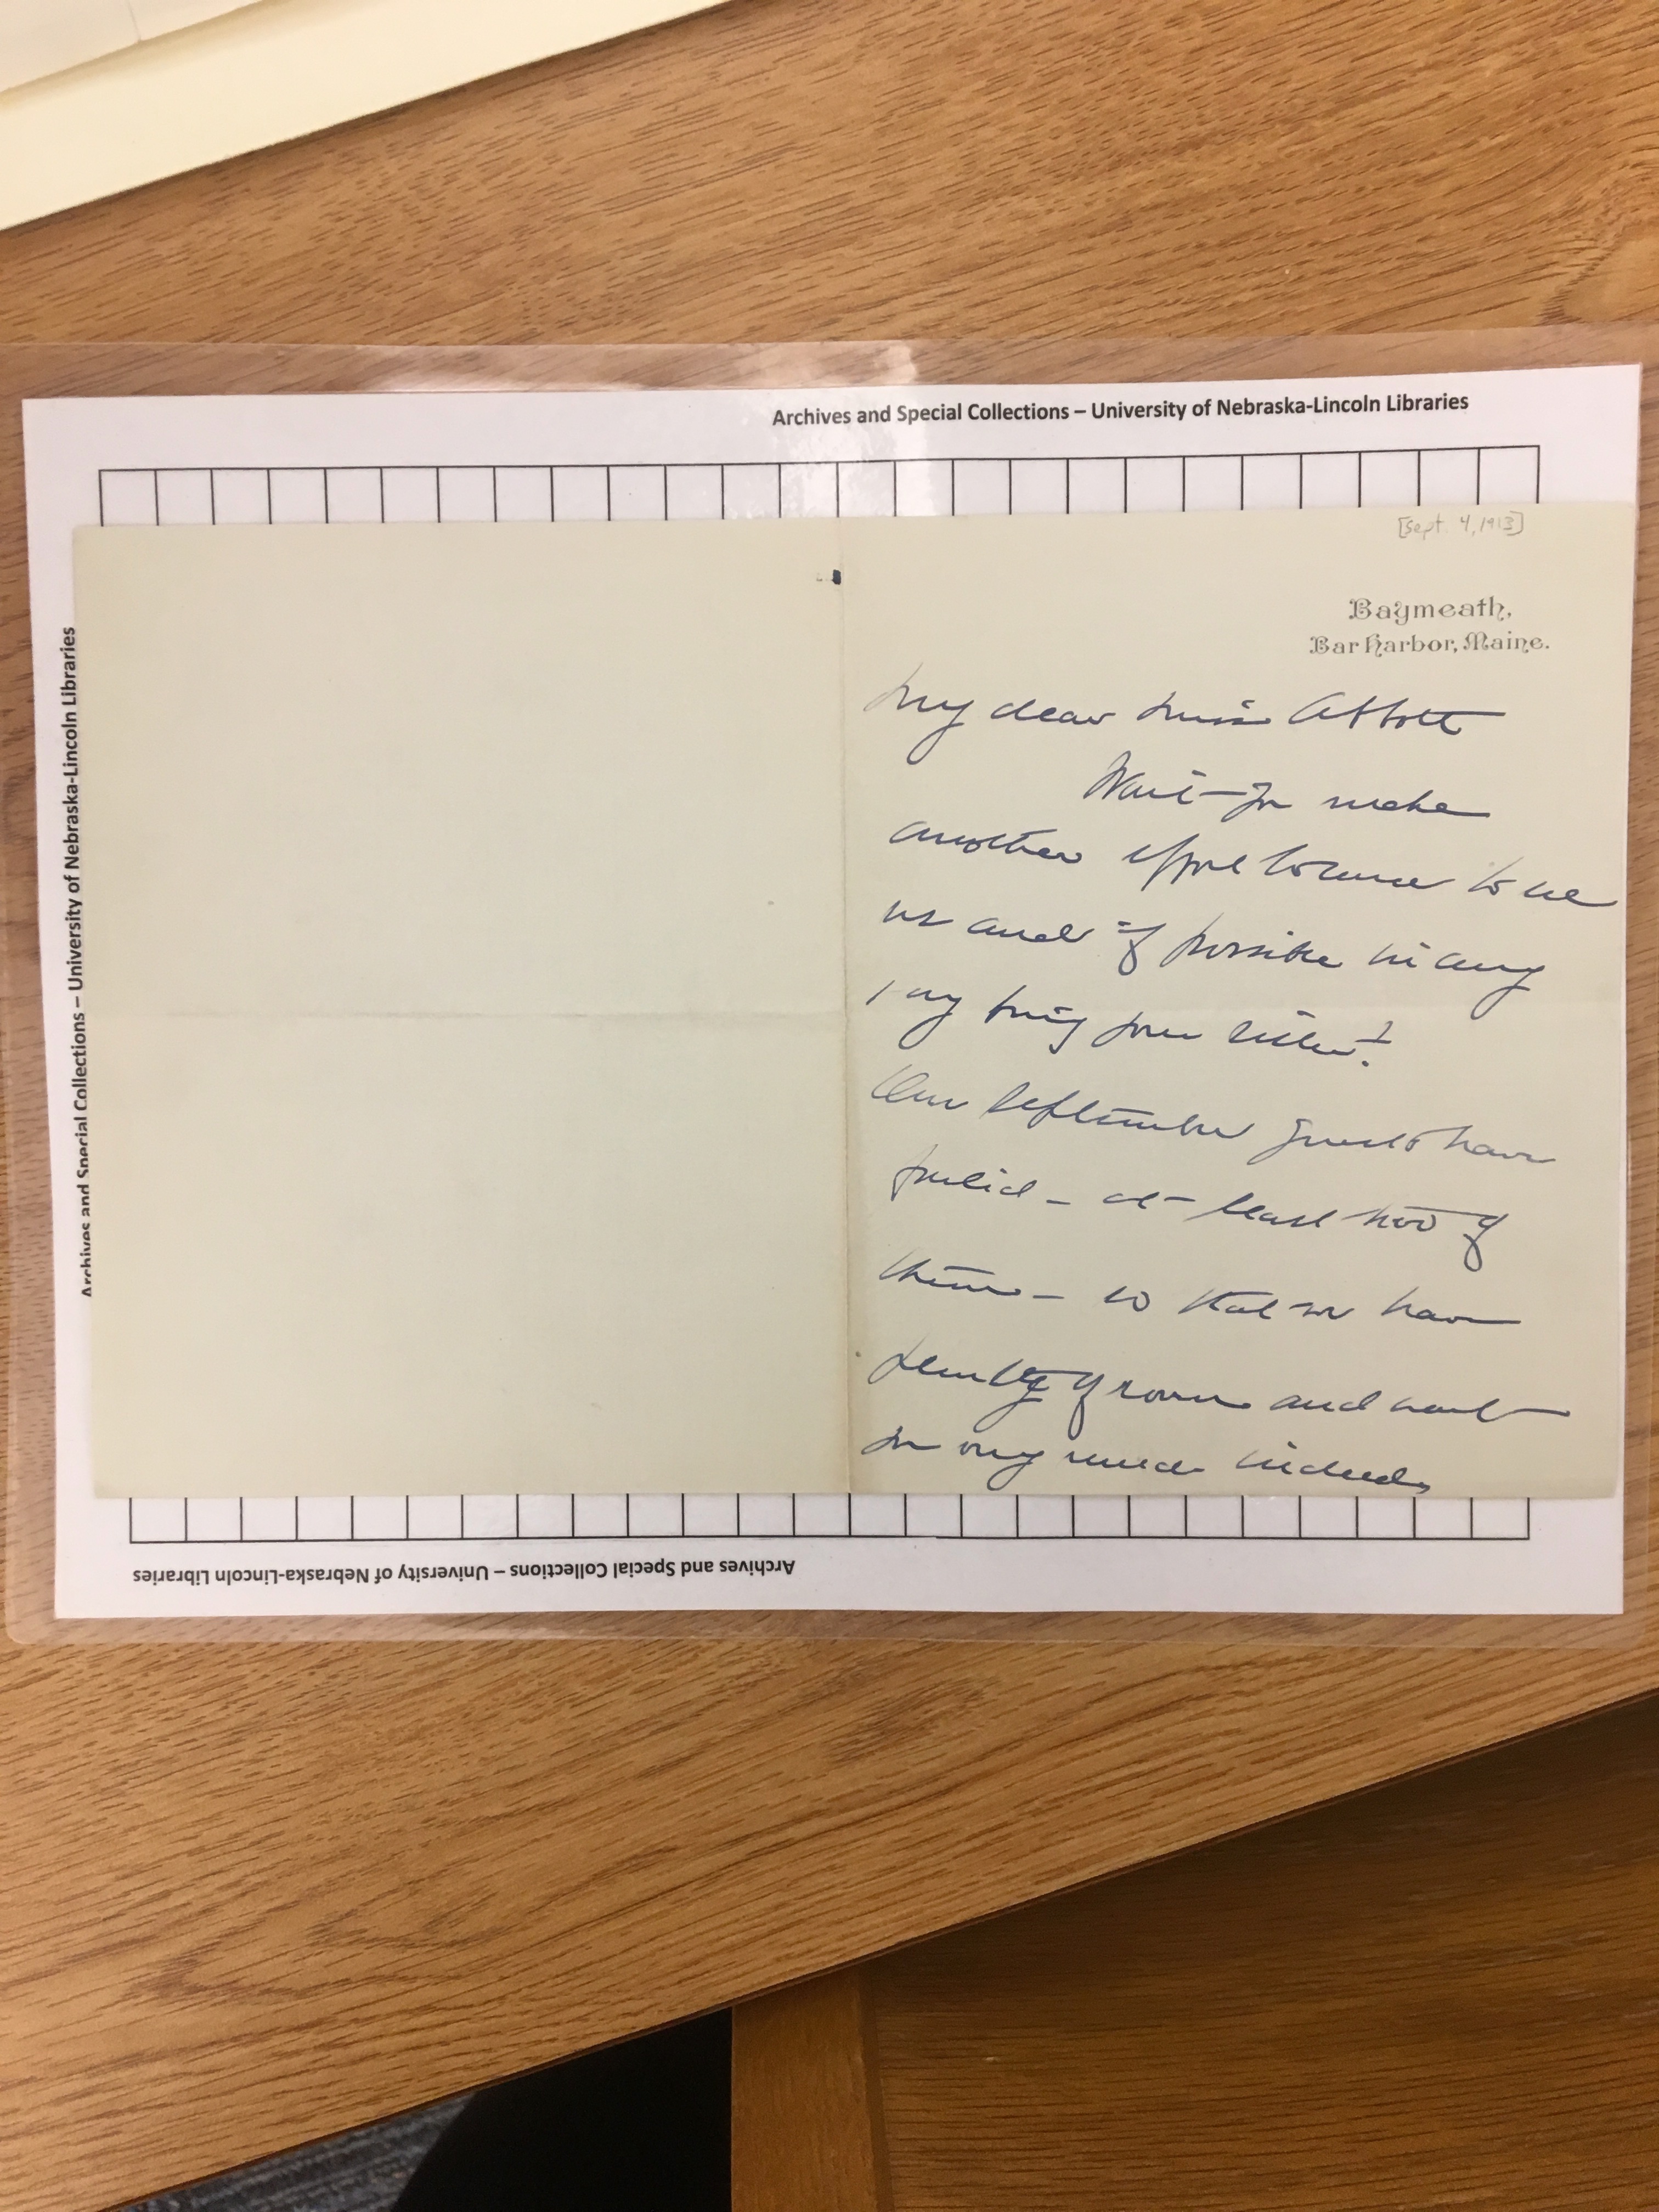 Archives and Special Collections – University of Nebraska-Lincoln Libraries
Archives and Special Collections – University of Nebraska-Lincoln Libraries
[Sept. 4, 1913]
Baymeath,
Bar Harbor, Maine.
My dear Miss Abbott
Won't you make
another effort to come to see
us and if possible in any
way bring your sister?
Our September guests have
failed – at least two of
them – so that we have
plenty of room and want
you very much indeed,
Archives and Special Collections – University of Nebraska-Lincoln Libraries